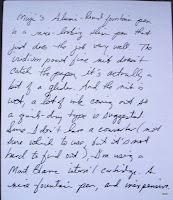 Muji's Aluminum Round fountain pen
is a nice-looking slim pen that
just does the job very well. The
iridium point fine nib doesn't
catch the paper, it's actually a
bit of a glider. And the nib is
wet, a lot of ink coming out so
a quick-dry type is suggested.
Since I don't have a converter (not
sure which to use, but it's not
hard to find out), I'm using a
Mont Blanc internat'l cartridge. A
nice fountain pen, and inexpensive.